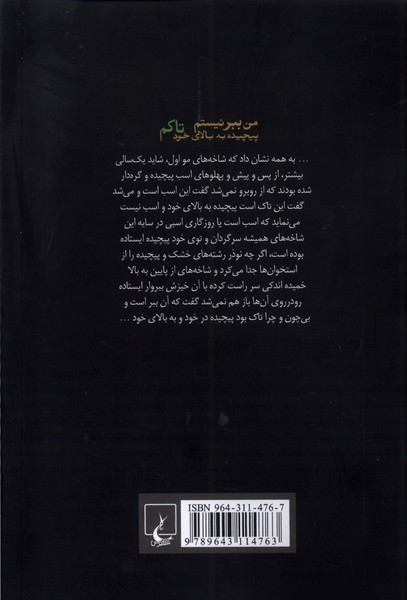 من ببر نیستم
پیچیده به بالای خود تاکم
... به همه نشان داد که شاخه‌های مو اول، شاید یک‌سالی
بیشتر، از پس و پیش و پهلوهای اسب پیچیده و گره‌دار
شده بودند که از روبرو نمی‌شد گفت این اسب است و می‌شد
گفت این تاک است پیچیده به بالای خود و اسب نیست
می‌نماید که اسب است یا روزگاری اسبی در سایه این
شاخه‌های همیشه سرگردان و توی خود پیچیده ایستاده
بوده است، اگر چه نوذر رشته‌های خشک و پیچیده را از
استخوان‌ها جدا می‌کرد و شاخه‌های از پایین به بالا
خمیده اندکی سر راست کرده با آن خیزش ببروار ایستاده
رودرروی آن‌ها باز هم نمی‌شد گفت که آن ببر است و
بی‌چون و چرا تاک بود پیچیده در خود و به بالای خود ...
ISBN 964-311-476-7
9 789643 114763
ققنوس